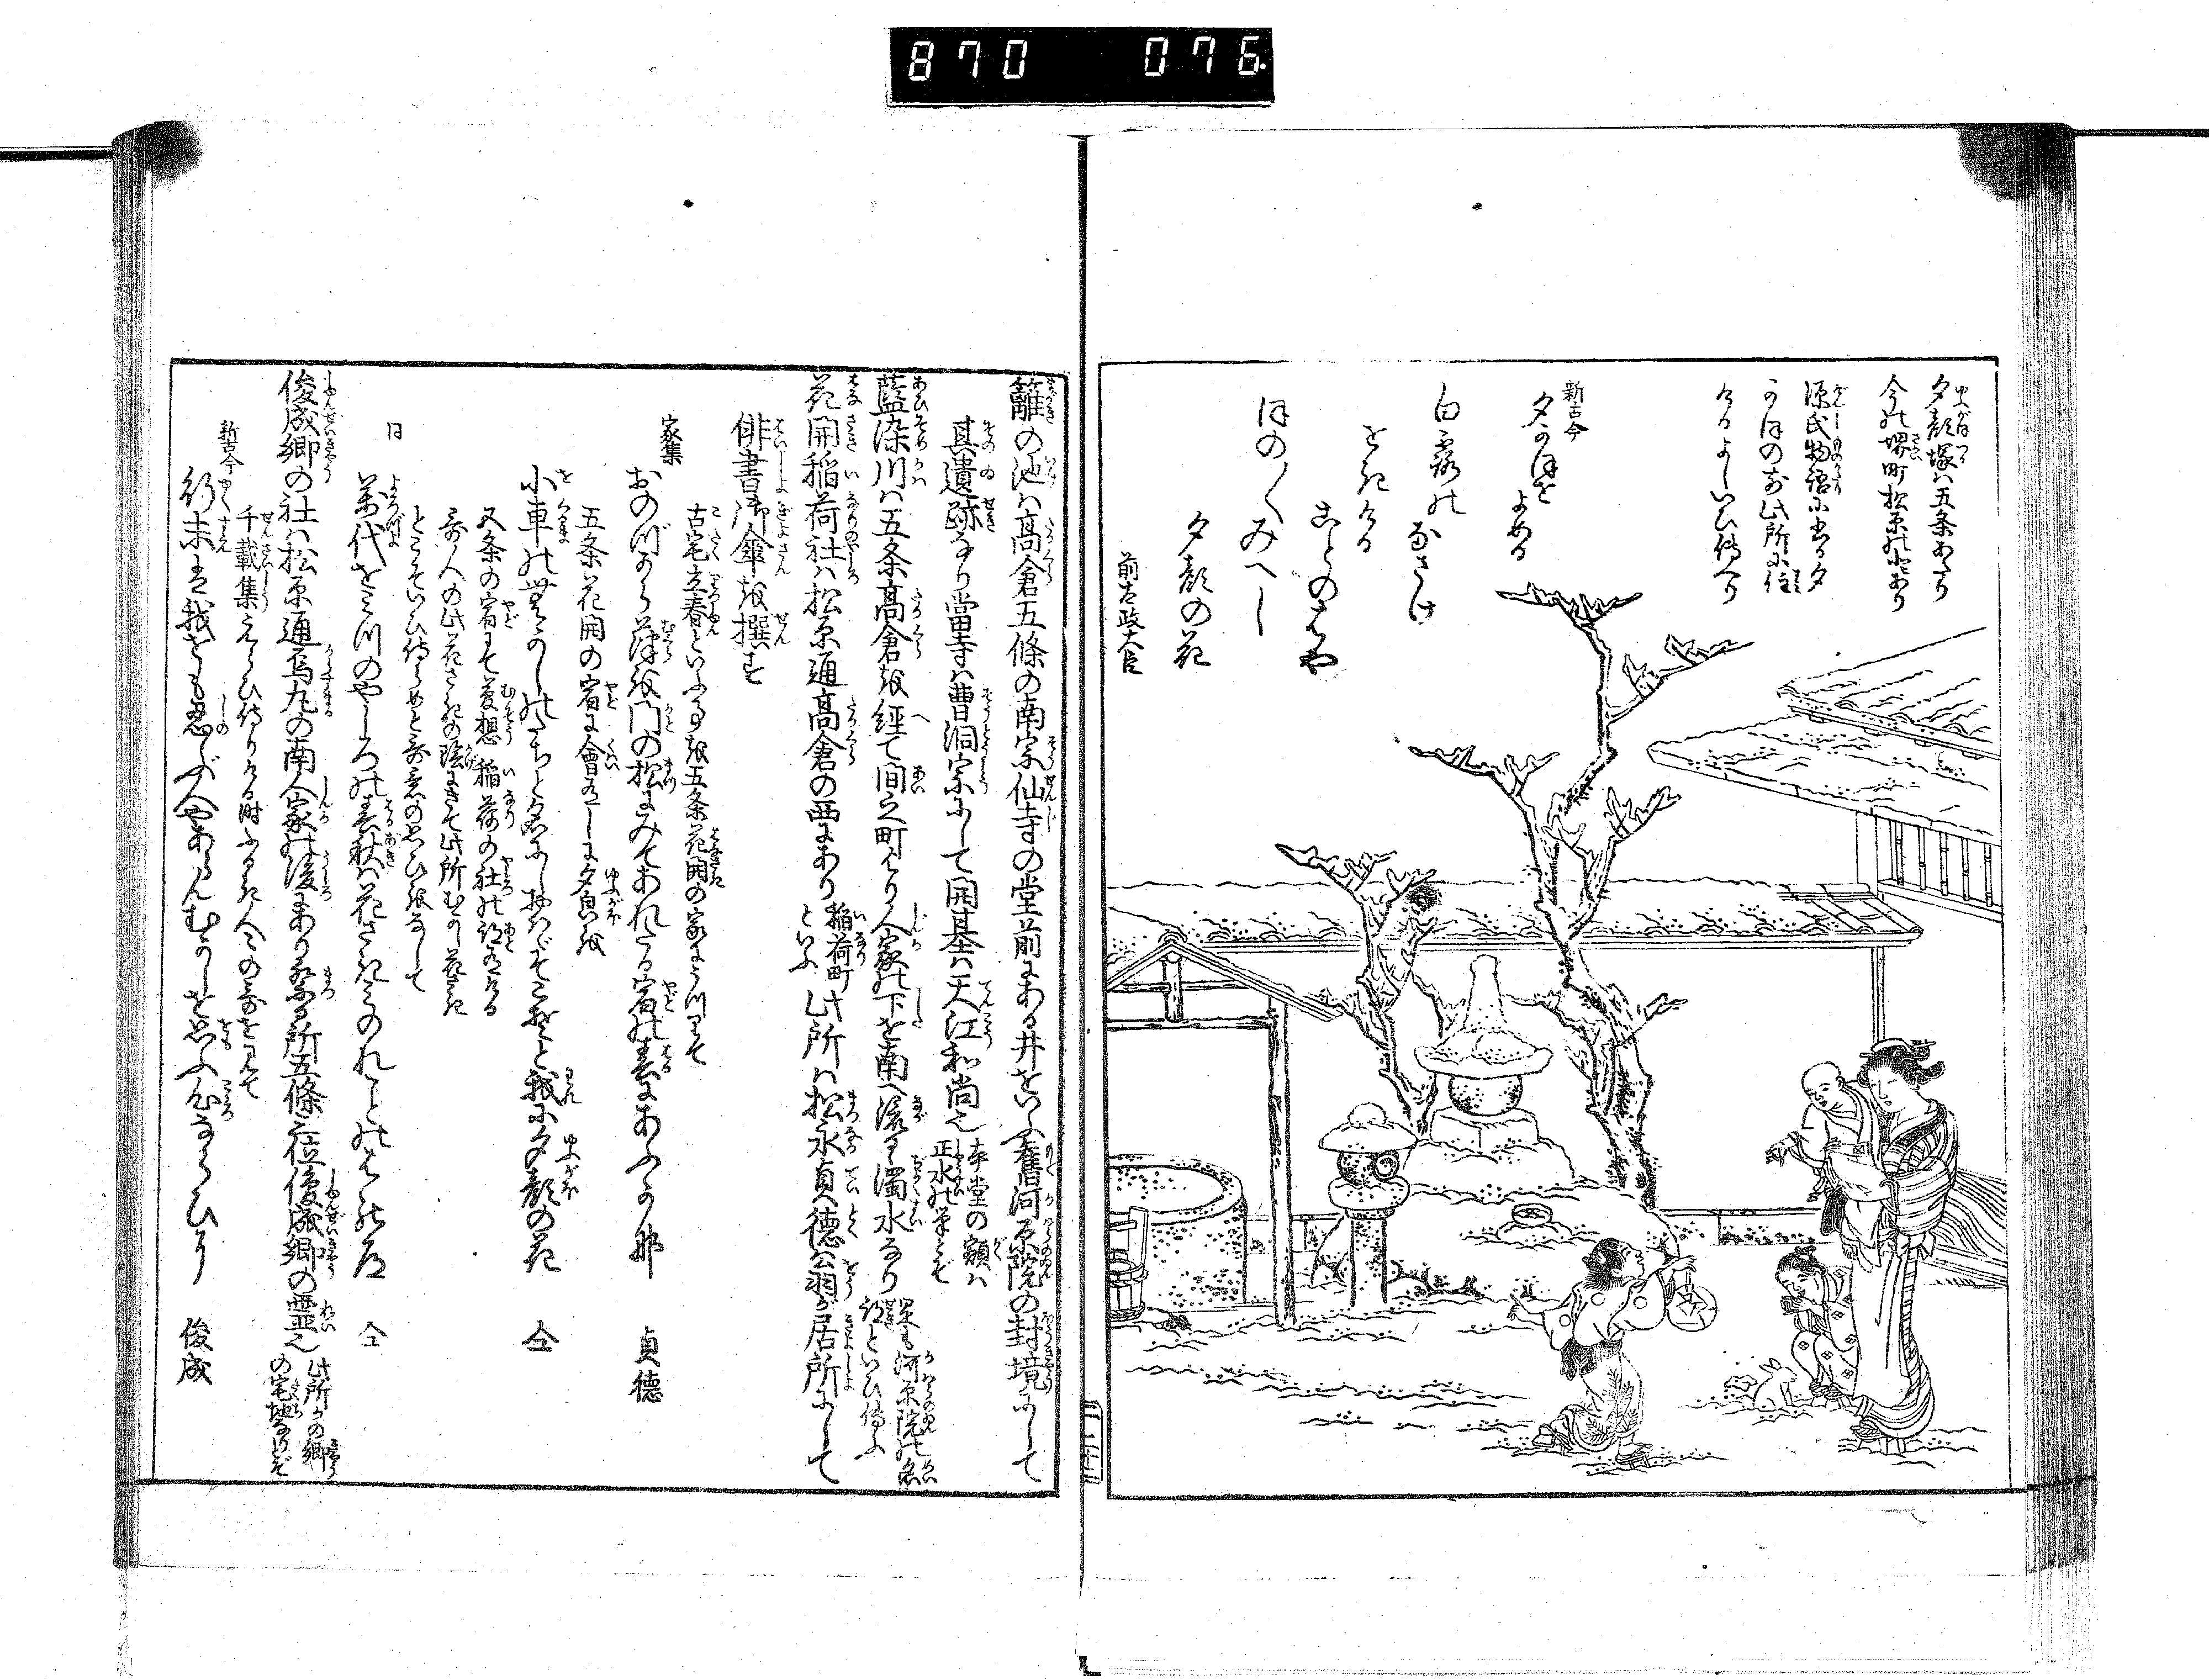 870 076.
夕顔塚ハ五条わたり
今の堺町松原の北にあり
源氏物語に出る夕
かほのまへ此所に住
けるよしいひ傳へり
新古今
夕かほをよめる
白露の
なさけ
をきける
ことのはや
ほの〱みへし
夕顔の花
前太政大臣
籬の池ハ高倉五條の南宗仙寺の堂前にある井をいふ舊河原院の封境にして
其遺跡なり當寺ハ曹洞宗にして開基ハ天江和尚也本堂の額ハ正水の筆とぞ
藍染川ハ五条高倉を經て間之町より人家の下を南へ流る濁水なり是も河原院の名跡といひ傳ふ
花開稲荷社ハ松原通高倉の西にあり稲荷町といふ此所ハ松永貞徳公羽が居所にして
俳書御傘を撰す
古宅立春といふ事を五条花開の家にうつりて
家集
おのづから葎を門の松にみてあれたる宿の春にあふかな 貞徳
五条花開の宿に會有しに夕皃を
小車の
我に夕顔の花 仝
五条の宿にて夢想稲荷の社の
哥人の此花さきの陰にきて此所むかし花さき
とこそいひ侍らめと哥の思ひをなして
同
萬代をみつのやしろの春秋ハ花さき 仝
俊成卿の社ハ松原通烏丸の南人家の後にあり祭る所五條三位俊成卿の霊也此所かの卿の宅地なりとぞ
千載集えらひ侍りける時ふるき人〻の哥を見て
新古今
行末は我をも忍ふ人やあらんむかしを思ふ心ならひに 俊成